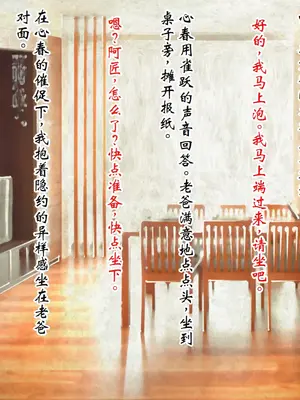 好的，我马上泡。我马上端过来，请坐吧。
心春用雀跃的声音回答。老爸满意地点点头，坐到
桌子旁，摊开报纸。
嗯？阿匠，怎么了？快点准备，快点坐下。
在心春的催促下，我抱着隐约的异样感坐在老爸
对面。